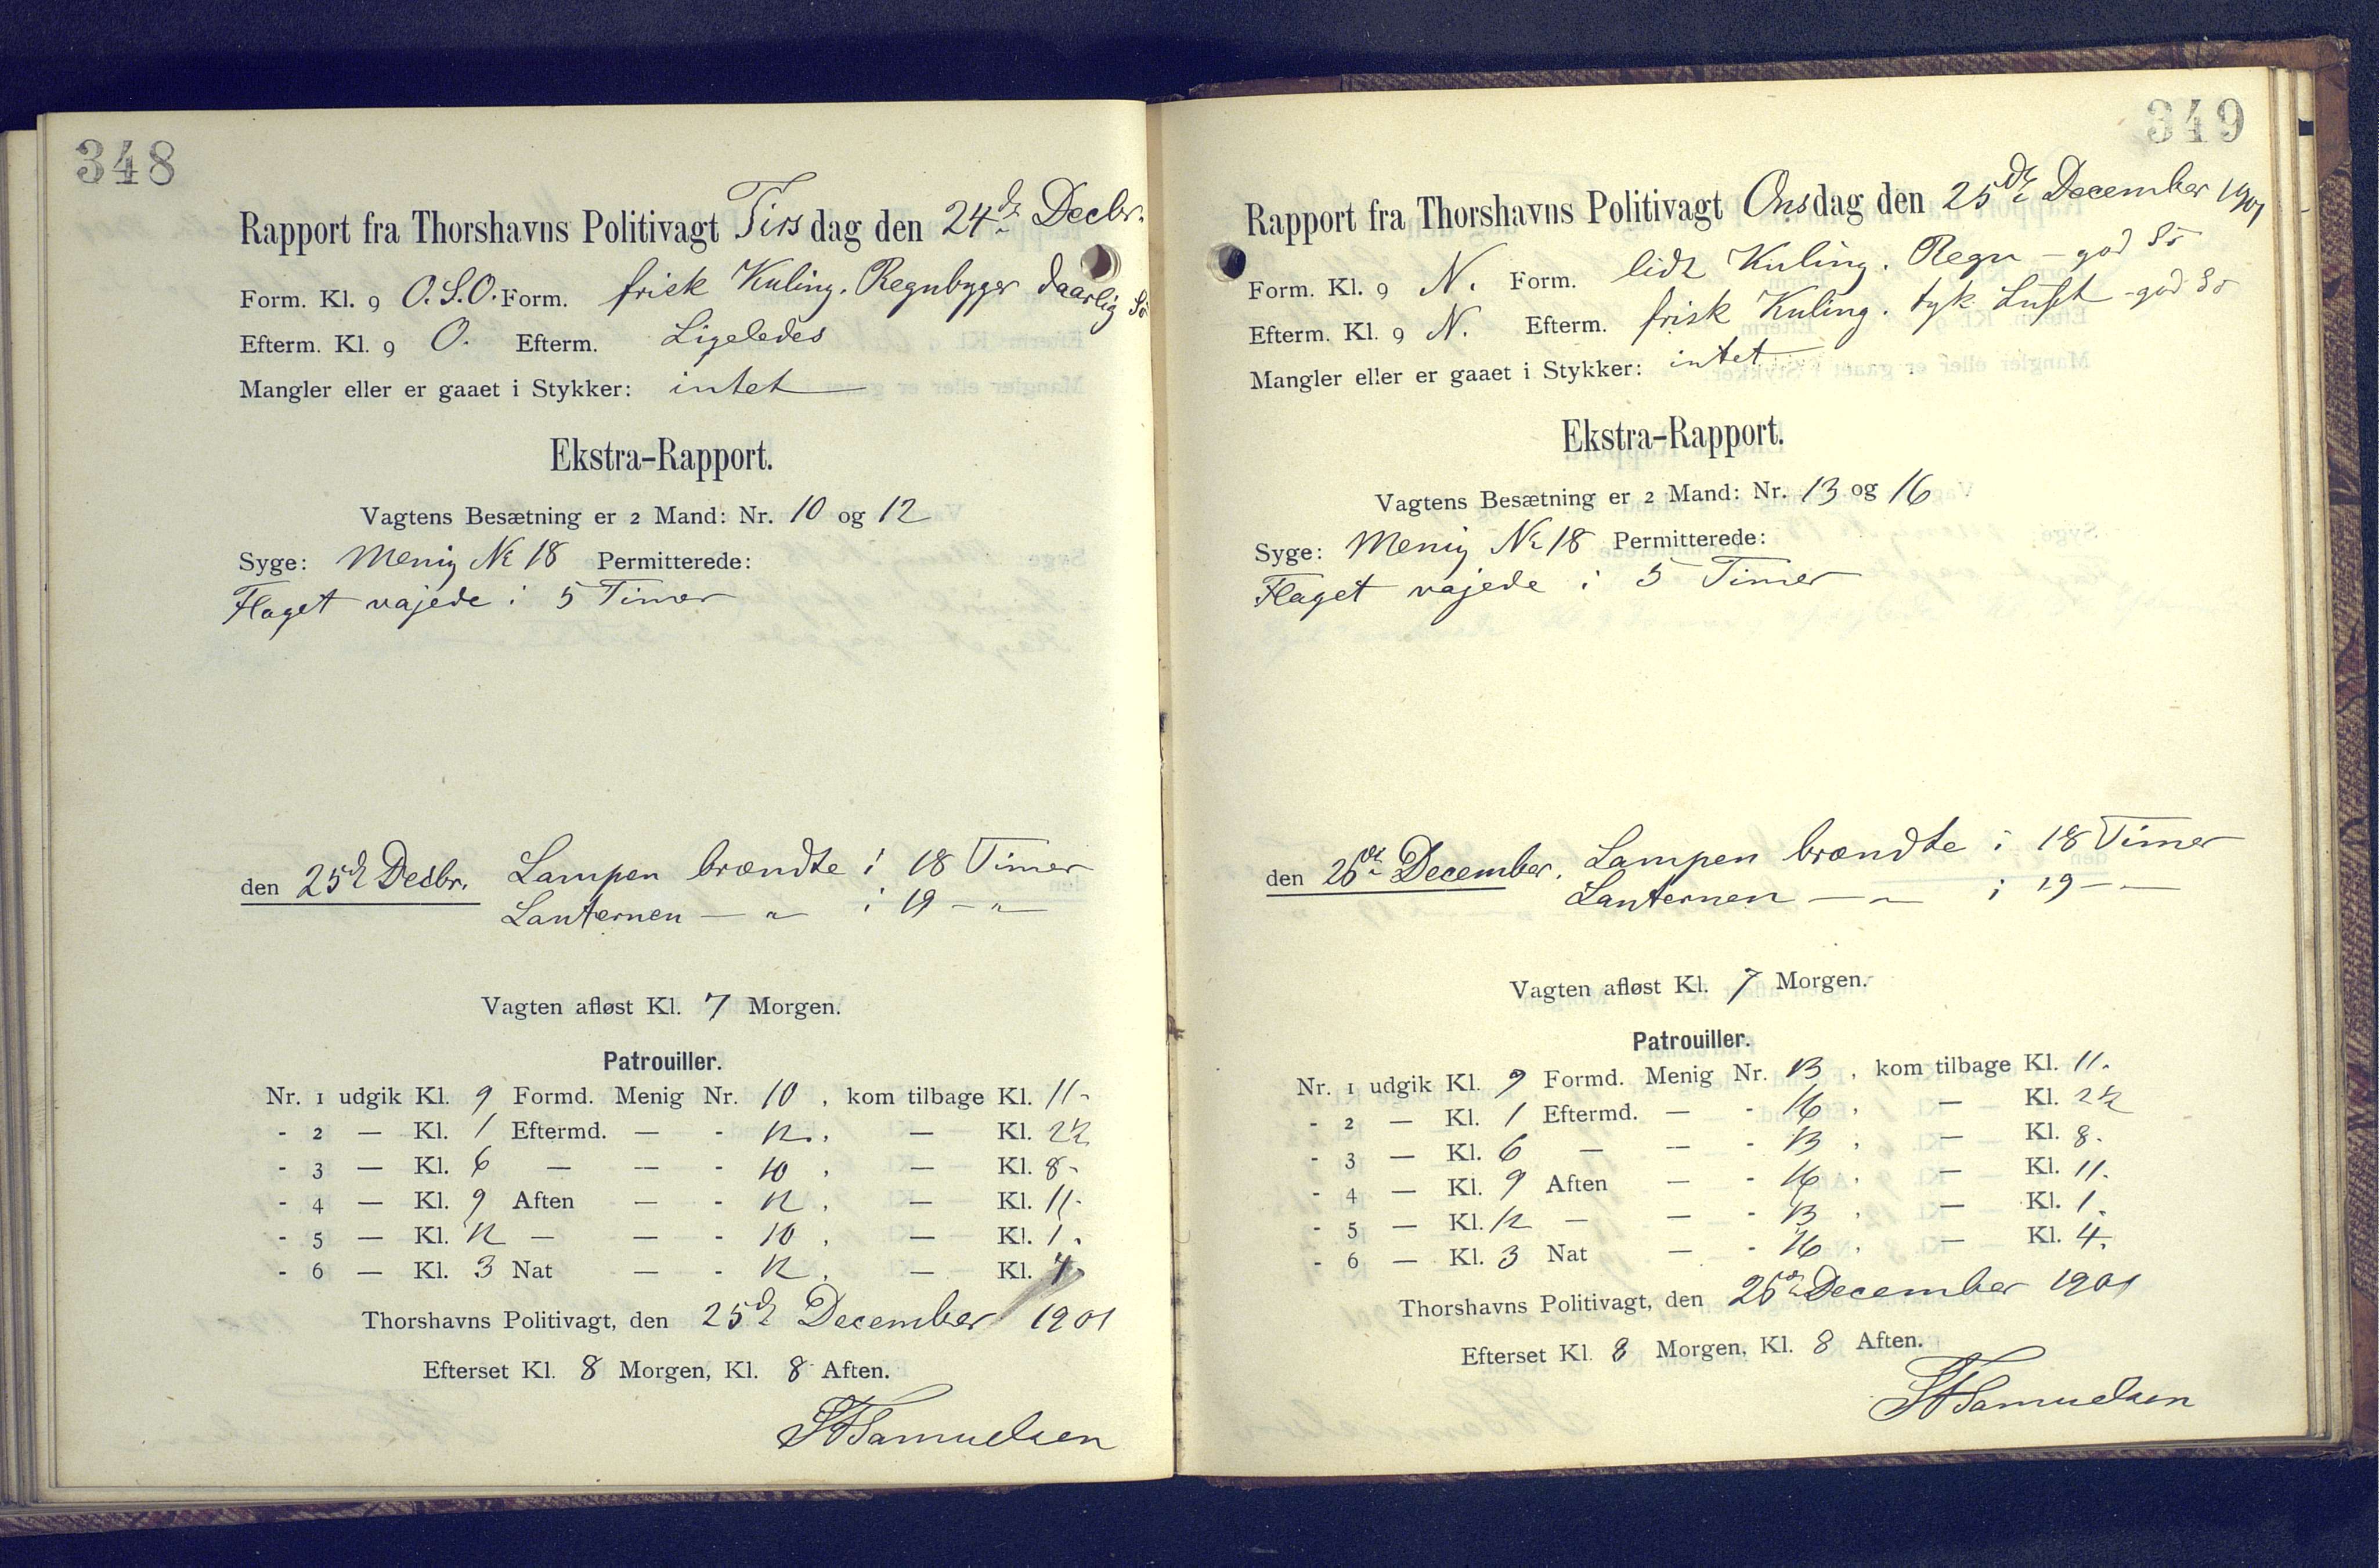 348
Rapport fra Thorshavns Politivagt Tirsdag den 24de Decbr.
Form. Kl. 9 O.S.O. Form. frisk Kuling. Regnbyger daarlig Sö
Efterm. Kl. 9 O. Efterm. Ligeledes
Mangler eller er gaaet i Stykker: intet
Ekstra-Rapport.
Vagtens Besætning er 2 Mand: Nr. 10 og 12
Syge: Menig Nr 18 Permitterede:
Flaget vajede i 5 Timer
den 25de Decbr. Lampen brændte i 18 Timer
Lanternen — " — i 19 — " —
Vagten afløst Kl. 7 Morgen.
Patrouiller.
Nr. 1 udgik Kl. 9 Formd. Menig Nr. 10, kom tilbage Kl. 11.
- 2 — Kl. 1 Eftermd. — - 12, — Kl. 2½
- 3 — Kl. 6 — — - 10, — Kl. 8.
- 4 — Kl. 9 Aften — - 12, — Kl. 11.
- 5 — Kl. 12 — — - 10, — Kl. 1.
- 6 — Kl. 3 Nat — - 12, — Kl. 4.
Thorshavns Politivagt, den 25de December 1901
Efterset Kl. 8 Morgen, Kl. 8 Aften.
Samuelsen
349
Rapport fra Thorshavns Politivagt Onsdag den 25de December 1901
Form. Kl. 9 N. Form. lidt Kuling. Regn - god Sö
Efterm. Kl. 9 N. Efterm. frisk Kuling. tyk Luft - god Sö
Mangler eller er gaaet i Stykker: intet
Ekstra-Rapport.
Vagtens Besætning er 2 Mand: Nr. 13 og 16
Syge: Menig Nr 18 Permitterede:
Flaget vajede i 5 Timer
den 26de December. Lampen brændte i 18 Timer
Lanternen — " — i 19 — —
Vagten afløst Kl. 7 Morgen.
Patrouiller.
Nr. 1 udgik Kl. 9 Formd. Menig Nr. 13, kom tilbage Kl. 11.
- 2 — Kl. 1 Eftermd. — - 16, — Kl. 2½
- 3 — Kl. 6 — — - 13, — Kl. 8.
- 4 — Kl. 9 Aften — - 16, — Kl. 11.
- 5 — Kl. 12 — — - 13, — Kl. 1.
- 6 — Kl. 3 Nat — - 16, — Kl. 4.
Thorshavns Politivagt, den 26de December 1901
Efterset Kl. 8 Morgen, Kl. 8 Aften.
Samuelsen